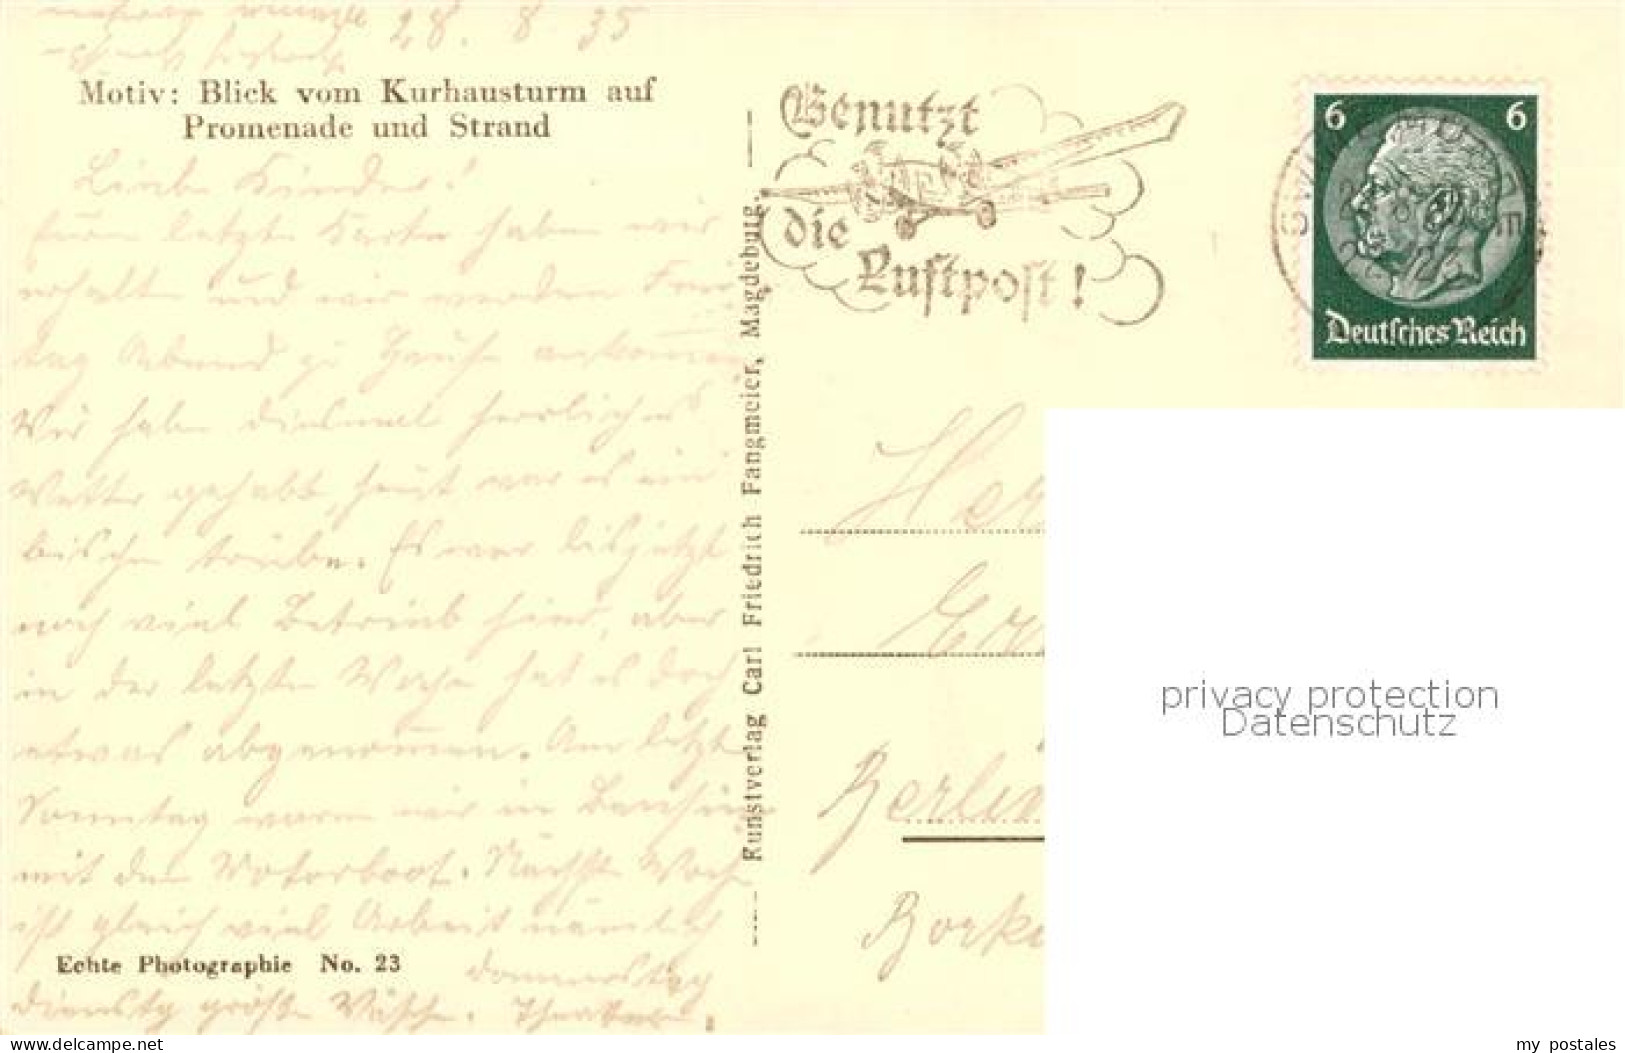 28. 8. 35
Motiv: Blick vom Kurhausturm auf
Promenade und Strand
Liebe Kinder!
Eure letzte Karte haben wir
erhalten und wir werden Frei-
tag Abend zu Hause ankommen.
Wir haben diesmal herrliches
Wetter gehabt, heut war es ein
bischen trübe. Es war bis jetzt
noch viel Betrieb hier, aber
in der letzten Woche hat es doch
etwas abgenommen. Am letzten
Sonntag waren wir in Bansin
mit dem Motorboot. Nächste Woche
ist gleich viel Arbeit nämlich
Donnerstag
Dienstag große Wäsche.
Echte Photographie No. 23
Kunstverlag Carl Friedrich Fangmeier, Magdeburg.
Benutzt
die
Luftpost!
6 6
Deutsches Reich
Her
Berlin
Borke
privacy protection
Datenschutz
www.delcampe.net
my_postales